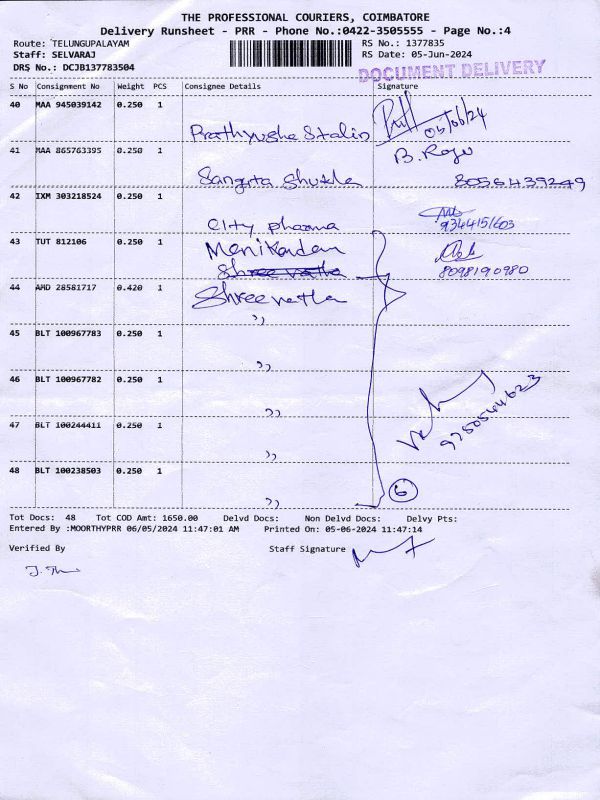 THE PROFESSIONAL COURIERS, COIMBATORE
Delivery Runsheet - PRR - Phone No.:0422-3505555 - Page No.:4
Route: TELUNGUPALAYAM
RS No.: 1377835
Staff: SELVARAJ
RS Date: 05-Jun-2024
DRS No.: DCJB137783504
DOCUMENT DELIVERY
S No Consignment No Weight PCS Consignee Details Signature
40 MAA 945039142 0.250 1
Prathyusha Stalin 05/06/24
41 MAA 865763395 0.250 1
B. Raju
Sangita Shukla 8056439249
42 IXM 303218524 0.250 1
City pharma 9344151603
43 TUT 812106 0.250 1
Manikandan
8098190980
44 AMD 28581717 0.420 1
Shreevatla
,,
45 BLT 100967783 0.250 1
,,
46 BLT 100967782 0.250 1
,,
9750544623
47 BLT 100244411 0.250 1
,,
48 BLT 100238503 0.250 1
6
,,
Tot Docs: 48 Tot COD Amt: 1650.00 Delvd Docs: Non Delvd Docs: Delvy Pts:
Entered By :MOORTHYPRR 06/05/2024 11:47:01 AM Printed On: 05-06-2024 11:47:14
Verified By
Staff Signature